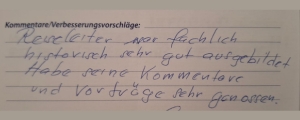 Kommentare/Verbesserungsvorschläge:
Reiseleiter war fachlich
historisch sehr gut ausgebildet
Habe seine Kommentare
und Vorträge sehr genossen.